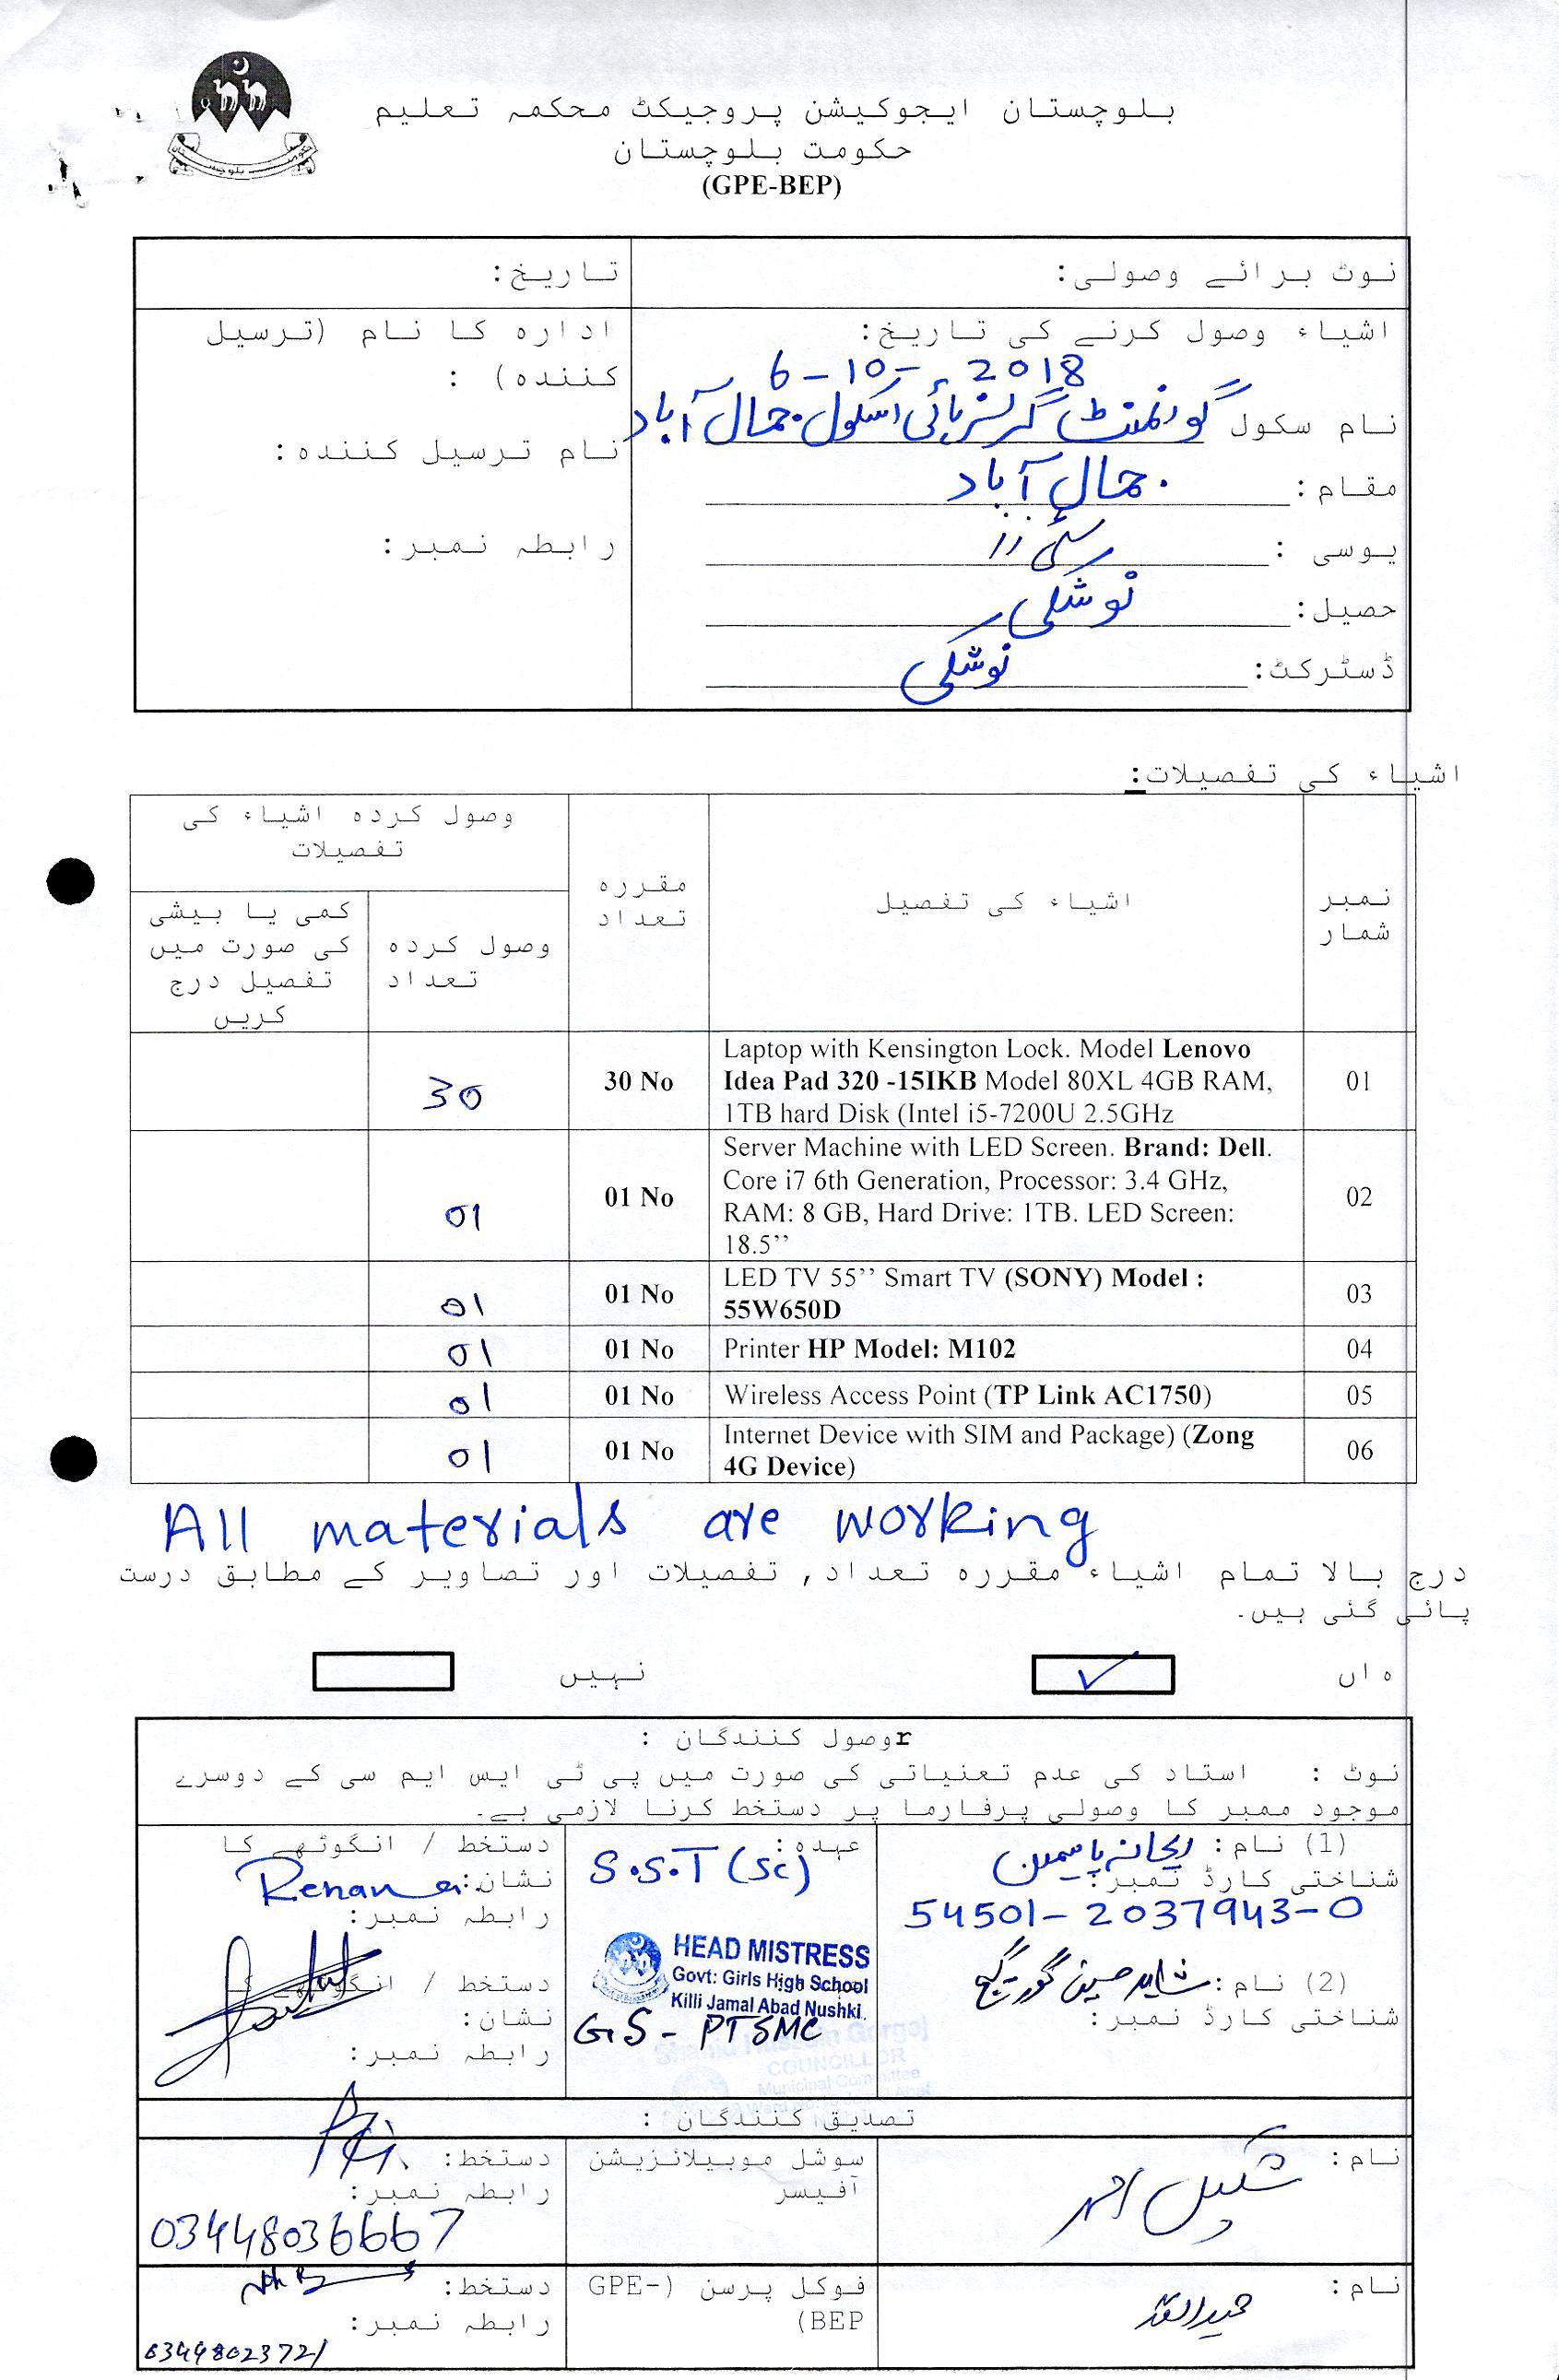 بلوچستان ایجوکیشن پروجیکٹ محکمہ تعلیم
حکومت بلوچستان
(GPE-BEP)
نوٹ برائے وصولی:
تاریخ:
اشیاء وصول کرنے کی تاریخ:
6-10-2018
نام سکول گورنمنٹ گرلز ہائی اسکول جمال آباد
مقام: جمال آباد
یوسی :
حصیل: نوشکی
ڈسٹرکٹ: نوشکی
ادارہ کا نام (ترسیل
کنندہ) :
نام ترسیل کنندہ:
رابطہ نمبر:
اشیاء کی تفصیلات:
نمبر شمار
اشیاء کی تفصیل
مقررہ تعداد
وصول کردہ اشیاء کی تفصیلات
وصول کردہ تعداد
کمی یا بیشی کی صورت میں تفصیل درج کریں
01 Laptop with Kensington Lock. Model Lenovo
Idea Pad 320 -15IKB Model 80XL 4GB RAM,
1TB hard Disk (Intel i5-7200U 2.5GHz
30 No 30
02 Server Machine with LED Screen. Brand: Dell.
Core i7 6th Generation, Processor: 3.4 GHz,
RAM: 8 GB, Hard Drive: 1TB. LED Screen:
18.5’’
01 No 01
03 LED TV 55’’ Smart TV (SONY) Model :
55W650D
01 No 01
04 Printer HP Model: M102 01 No 01
05 Wireless Access Point (TP Link AC1750) 01 No 01
06 Internet Device with SIM and Package) (Zong
4G Device)
01 No 01
All materials are working
درج بالا تمام اشیاء مقررہ تعداد, تفصیلات اور تصاویر کے مطابق درست
پائی گئی ہیں۔
ہ اں
نہیں
rوصول کنندگان :
نوٹ : استاد کی عدم تعنیاتی کی صورت میں پی ٹی ایس ایم سی کے دوسرے
موجود ممبر کا وصولی پرفارما پر دستخط کرنا لازمی ہے۔
(1) نام: ریحانہ یاسمین
شناختی کارڈ نمبر:
54501-2037943-0
عہدہ:
S.S.T (Sc)
دستخط / انگوٹھے کا
نشان:
رابطہ نمبر:
(2) نام: شاہد حسین گورگیج
شناختی کارڈ نمبر:
HEAD MISTRESS
Govt: Girls High School
Killi Jamal Abad Nushki.
GS - PTSMC
Gorgej
COUNCILLOR
Municipal Committee
دستخط / انگوٹھے کا
نشان:
رابطہ نمبر:
تصدیق کنندگان :
نام: شکیل احمد
سوشل موبیلائزیشن
آفیسر
دستخط:
رابطہ نمبر:
03448036667
نام:
فوکل پرسن (GPE-
BEP)
دستخط:
رابطہ نمبر:
03448023721